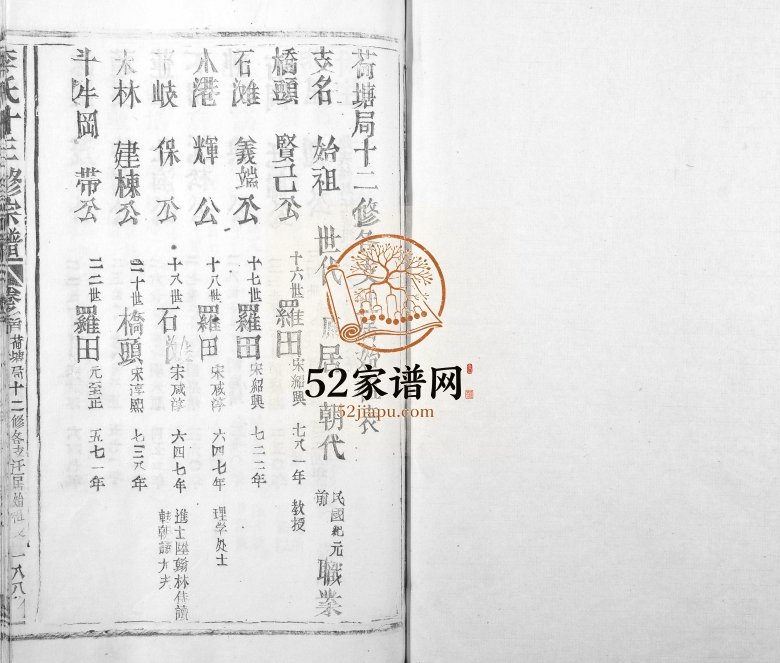 荷塘局十二修各支 始 表
支名 始祖 世代 居 朝代 民國紀元前 職業
橋頭 賢己公 十六世 羅田 宋紹興 七八一年 教授
石滩 義端公 十七世 羅田 宋紹興 七二二年
水港 輝公 十八世 羅田 宋咸淳 六四七年 理学处士
岐 保公 十八世 石 宋咸淳 六四七年 進士 翰林侍讀
林 建棟公 二十世 橋頭 宋淳熙 七三八年
斗牛岡 帶公 二二世 羅田 元至正 五七一年
李氏十三修宗譜 卷 首 荷塘局十二修各支 居始祖 一八八
52家谱网
52jiapu.com